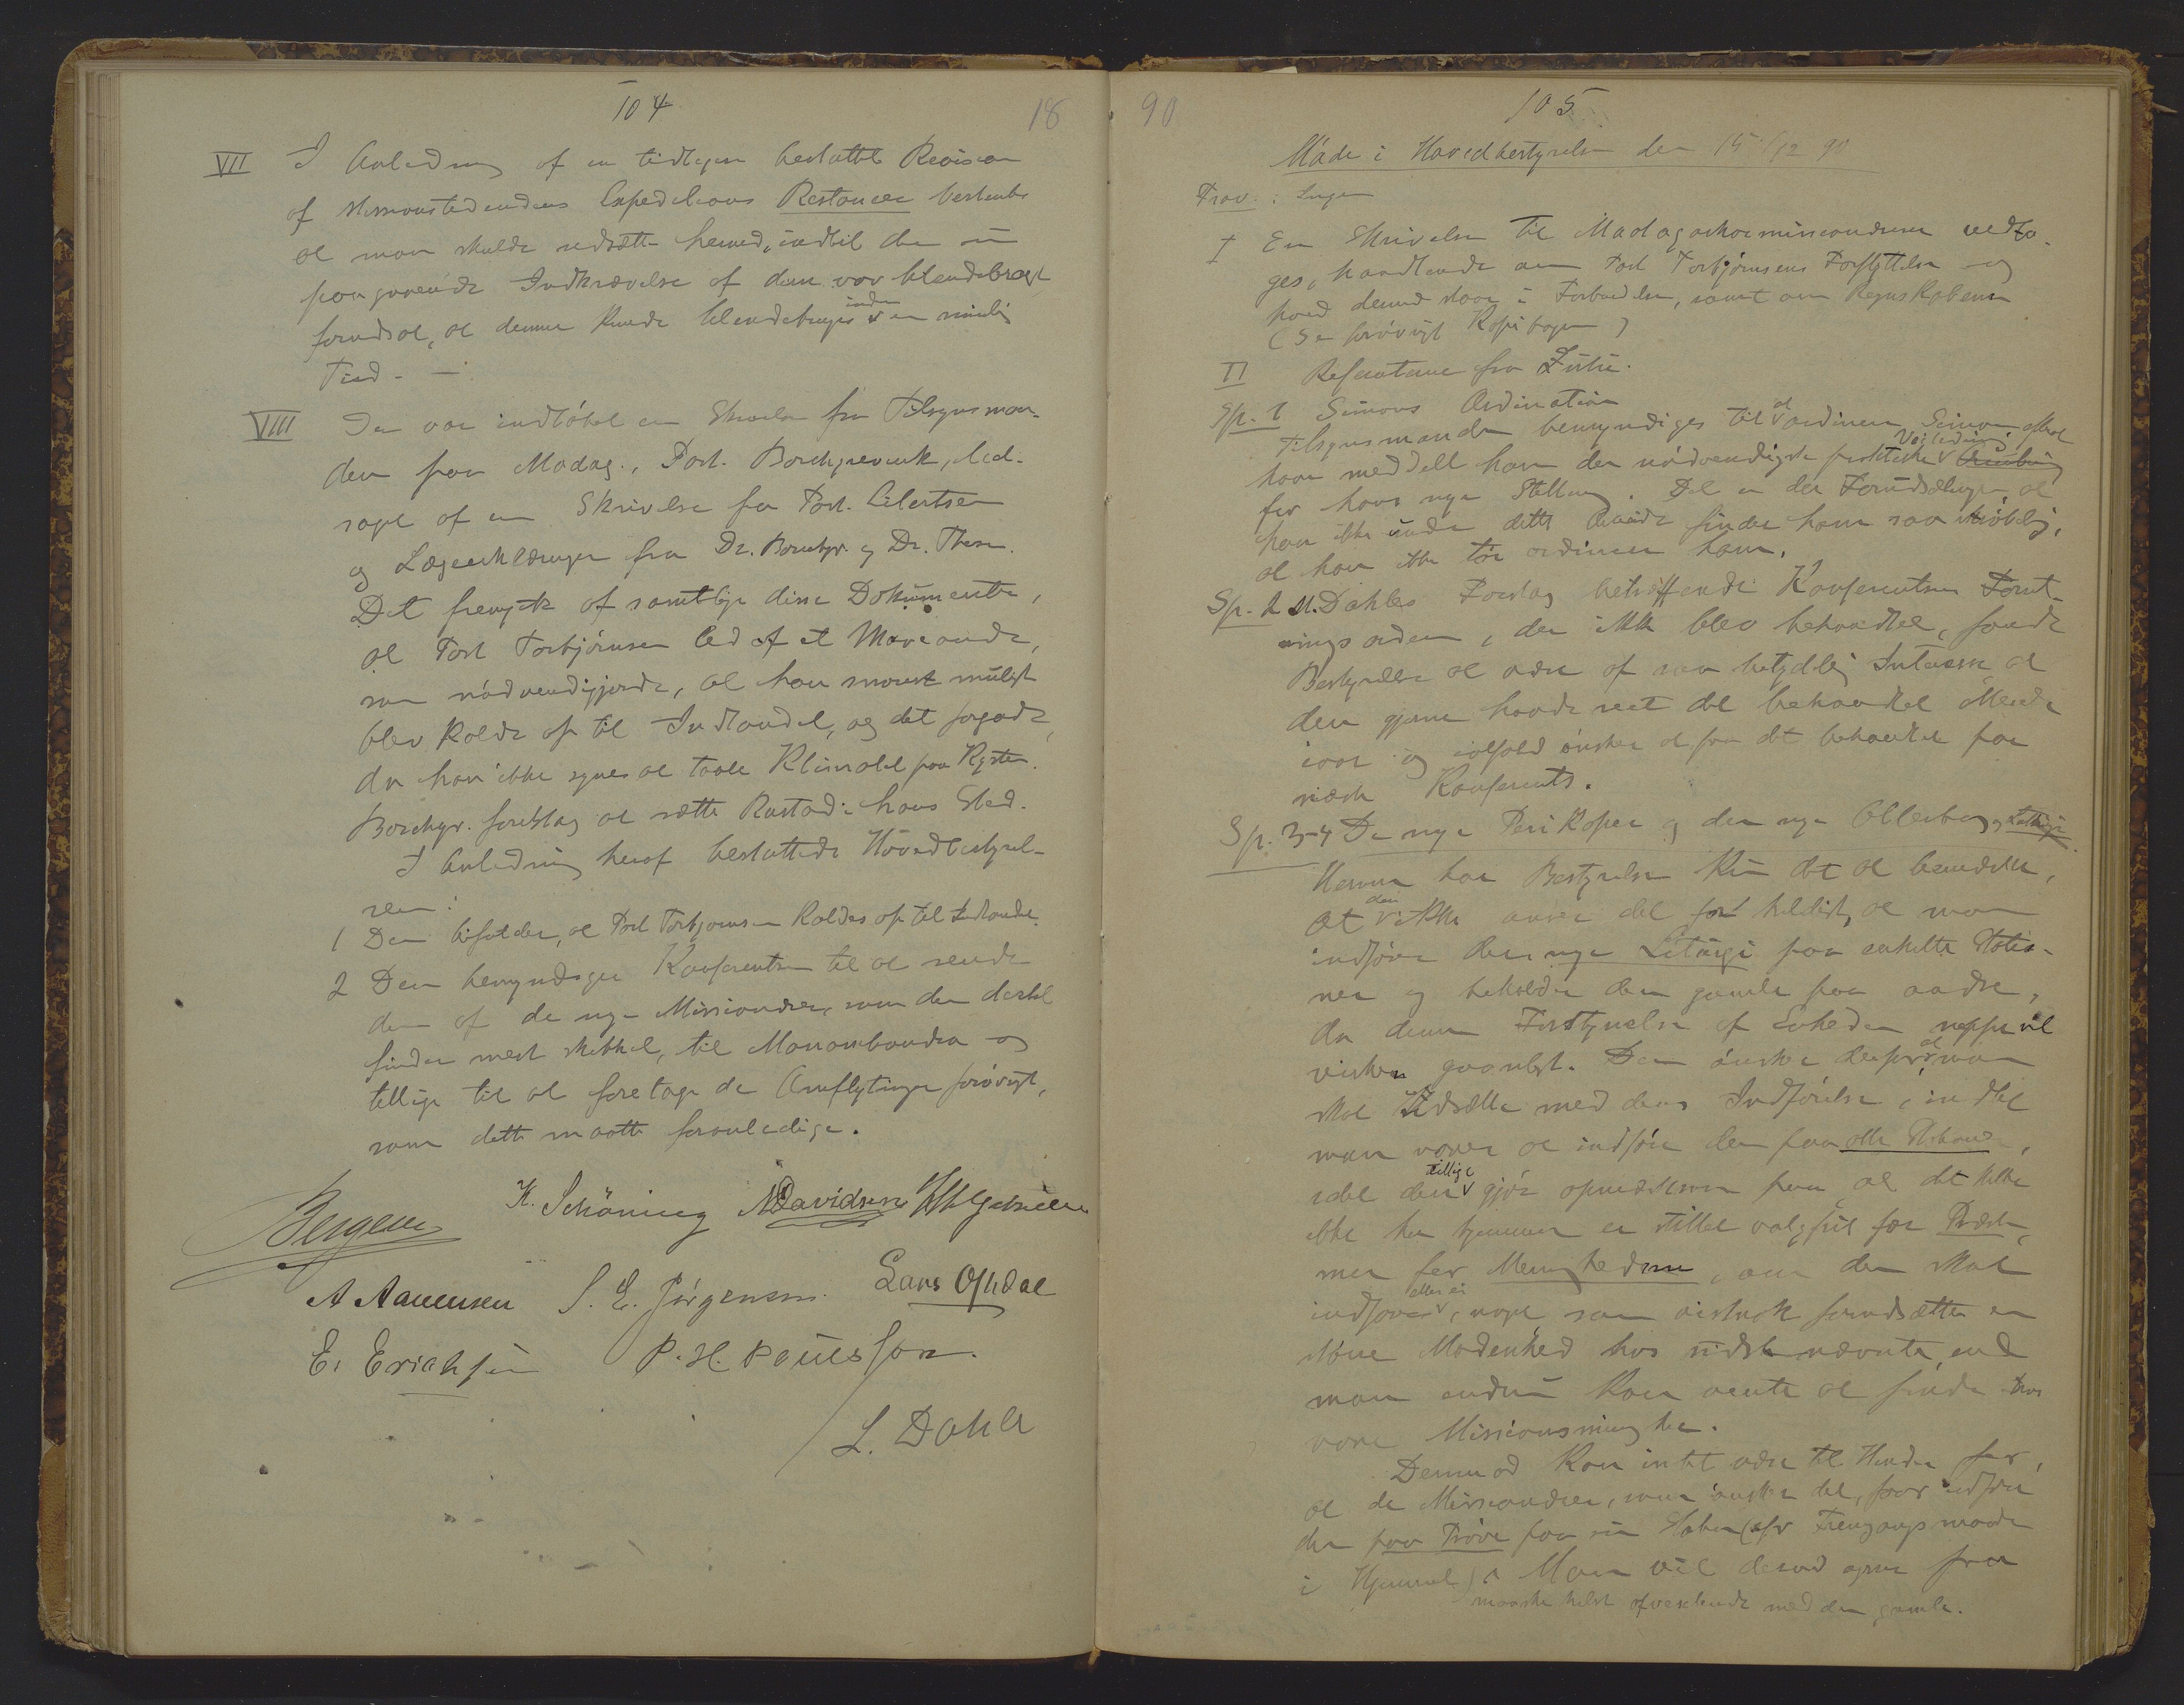 104
18
VII I Anledning af en tidligere besluttet Revision
af Missionstidendens Expeditions Restancer besluttedes
at man skulde udsætte hermed, indtil den nu
paagaaende Indkrævelse af dem var tilendebragt
forudsat, at denne kunde tilendebringes inden en rimelig
Tid. —
VIII Der var indløbet en Skrivelse fra Tilsynsman-
den paa Madag., Past. Borchgrevink, led-
saget af en Skrivelse fra Past. Eilertsen
og Lægeerklæringer fra Dr. Borchgr. og Dr. Thesen.
Det fremgik af samtlige disse Dokumenter,
at Past Torbjørnsen led af et Maveonde,
som nødvendiggjorde, at han snarest muligt
blev kaldt op til Indlandet, og det for godt,
da han ikke synes at taale Klimatet paa Kysten.
Borchgr. foreslog at sætte Rustad i hans Sted.
I Anledning heraf besluttede Hovedbestyrel-
sen:
1 Den bifalder, at Past Torbjørnsen kaldes op til Indlandet.
2 Den bemyndiger Konferentsen til at sende
den af de nye Missionærer, som den dertil
finder mest skikket, til Manambondro og
tillige til at foretage de Omflytninger forøvrigt,
som dette maatte foranledige.
K. Schöning NDavidsen
Bergesen
A Aanensen S. E. Jørgensen. Lars Oftedal
E. Erichsen P. H. Poulsson.
L. Dahle
90
105
Møde i Hovedbestyrelsen den 15/12 90
Frav.: Ingen
I En Skrivelse til Madagaskarmissionærerne vedto-
ges, handlende om Past Torbjørnsens Forflyttelse og
hvad dermed staar i Forbindelse, samt om Regnskaberne
(Se forøvrigt Kopibogen)
II Referaterne fra Zulu.
Sp. 1 Simons Ordination
Tilsynsmanden bemyndiges til at ordinere Simon efterat
have meddelt ham den nødvendigste praktiske Veiledning
for hans nye Stilling. Det er den Forudsætning, at
han ikke under dette Arbeide finder ham saa skrøbelig,
at han ikke tør ordinere ham.
Sp. 2 M. Dahles Forslag betræffende Konferentsens Forret-
ningsorden, der ikke blev behandlet, fandt
Bestyrelsen at være af saa betydelig Interesse at
den gjerne havde seet det behandlet allerede
iaar og ialfald ønsker at faa det behandlet paa
næste Konferents.
Sp. 3-4 De nye Perikoper og den nye Alterbog og Liturgi.
Herom har Bestyrelsen kun det at bemærke,
at den ikke anser det for heldigt, at man
indfører den nye Liturgi paa enkelte Statio-
ner og beholder den gamle paa andre,
da denne Forstyrrelse af Enheden neppe vil
virke gavnligt. Den ønsker derfor, at man
skal udsætte med dens Indførelse, indtil
man vover at indføre den paa alle Stationer,
idet den tillige gjør opmærksom paa at det heller
ikke her hjemme er stillet valgfrit for Præsten,
men for Menighederne, om den skal
indføres eller ei, noget som vistnok forudsætter en
større Modenhed hos sidstnævnte, end
man endnu kan vente at finde hos
vore Missionsmenigheder.
Derimod kan intet være til Hinder for,
at de Missionærer, som ønsker det, faar indføre
den paa Prøve paa sin Station (cfr Fremgangsmaaden
i Hjemmet). Man vil derved ogsaa faa
maaske helst afvexlende med den gamle.